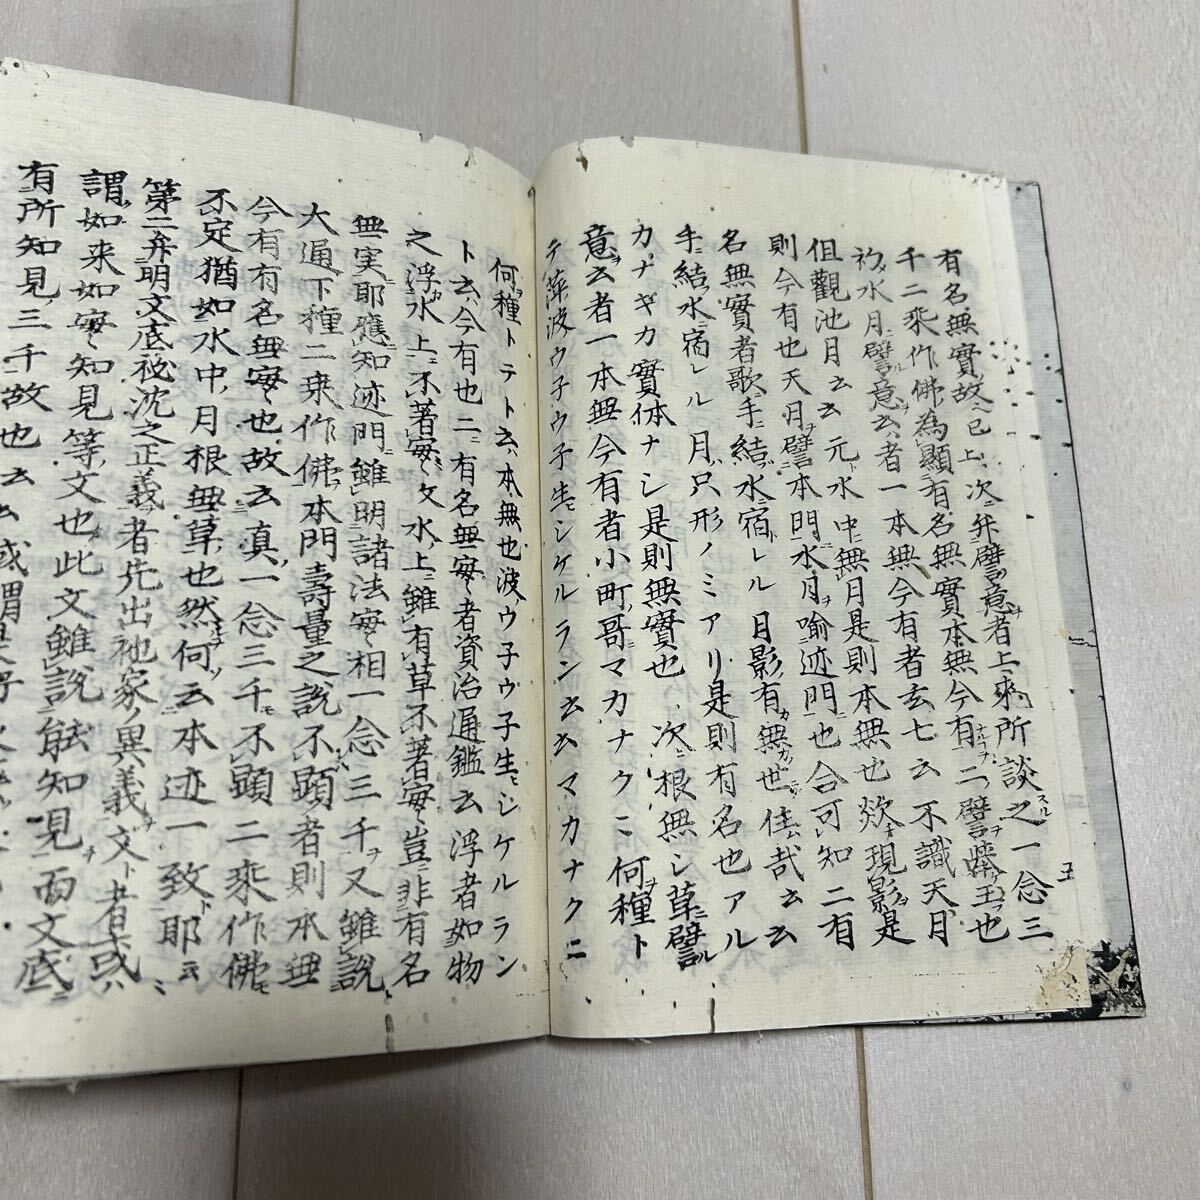 有名無實故ニ已上次ニ弁譬意者上来所談スル之一念三
千二乗作佛為顯有名無實本無今有ニ二ノ譬ヲ也
初ノ水月ノ譬ル意ヲ云ハ者一本無今有者玄七云不識天月
但觀池月云云元ト水中ニ無月是則本無也欻チ現影ヲ是
則今有也天月ヲ譬本門ニ水月ヲ喩迹門ニ也合可知二有
名無實者歌ニ手ニ結ブ水ニ宿レル月影有カ無カノ世ニ住ム哉云云
手ニ結ブ水ニ宿レル月ハ只形ノミアリ是則有名也アル
カナキカ實体ナシ是則無實也次ニ根無シ草ニ譬ル
意ヲ云者一本無今有者小町ノ哥マカナクニ何ヲ種ト
テ萍波ウ子ウ子生シケルラン云云マカナクニ
何ヲ種トテト云ハ本無也波ノウ子ウ子生モシケルラン
ト云ハ今有也二ニ有名無實ト者資治通鑑云浮者如物
之浮カ水上ニ不著實ニ文水ノ上ニ雖有草不著實ニ豈ニ非有名
無実耶應知迹門ニ雖明諸法實相一念三千ヲ又雖説
大通下種二乗作佛ヲ本門壽量之説不顯者則本無
今有有名無實也故云真ノ一念三千モ不顯二乗作佛モ
不定猶如水中ノ月根無草ノ也然ルヲ何ソ云本迹一致ト耶云云
第二弁明文底秘沈之正義ヲ者先出他家ノ異義ヲ文ト者或ハ
謂ク如来如實知見等ノ文也此文雖説能知見ヲ而文底ニ
有所知見ノ三千故也云云或謂是好